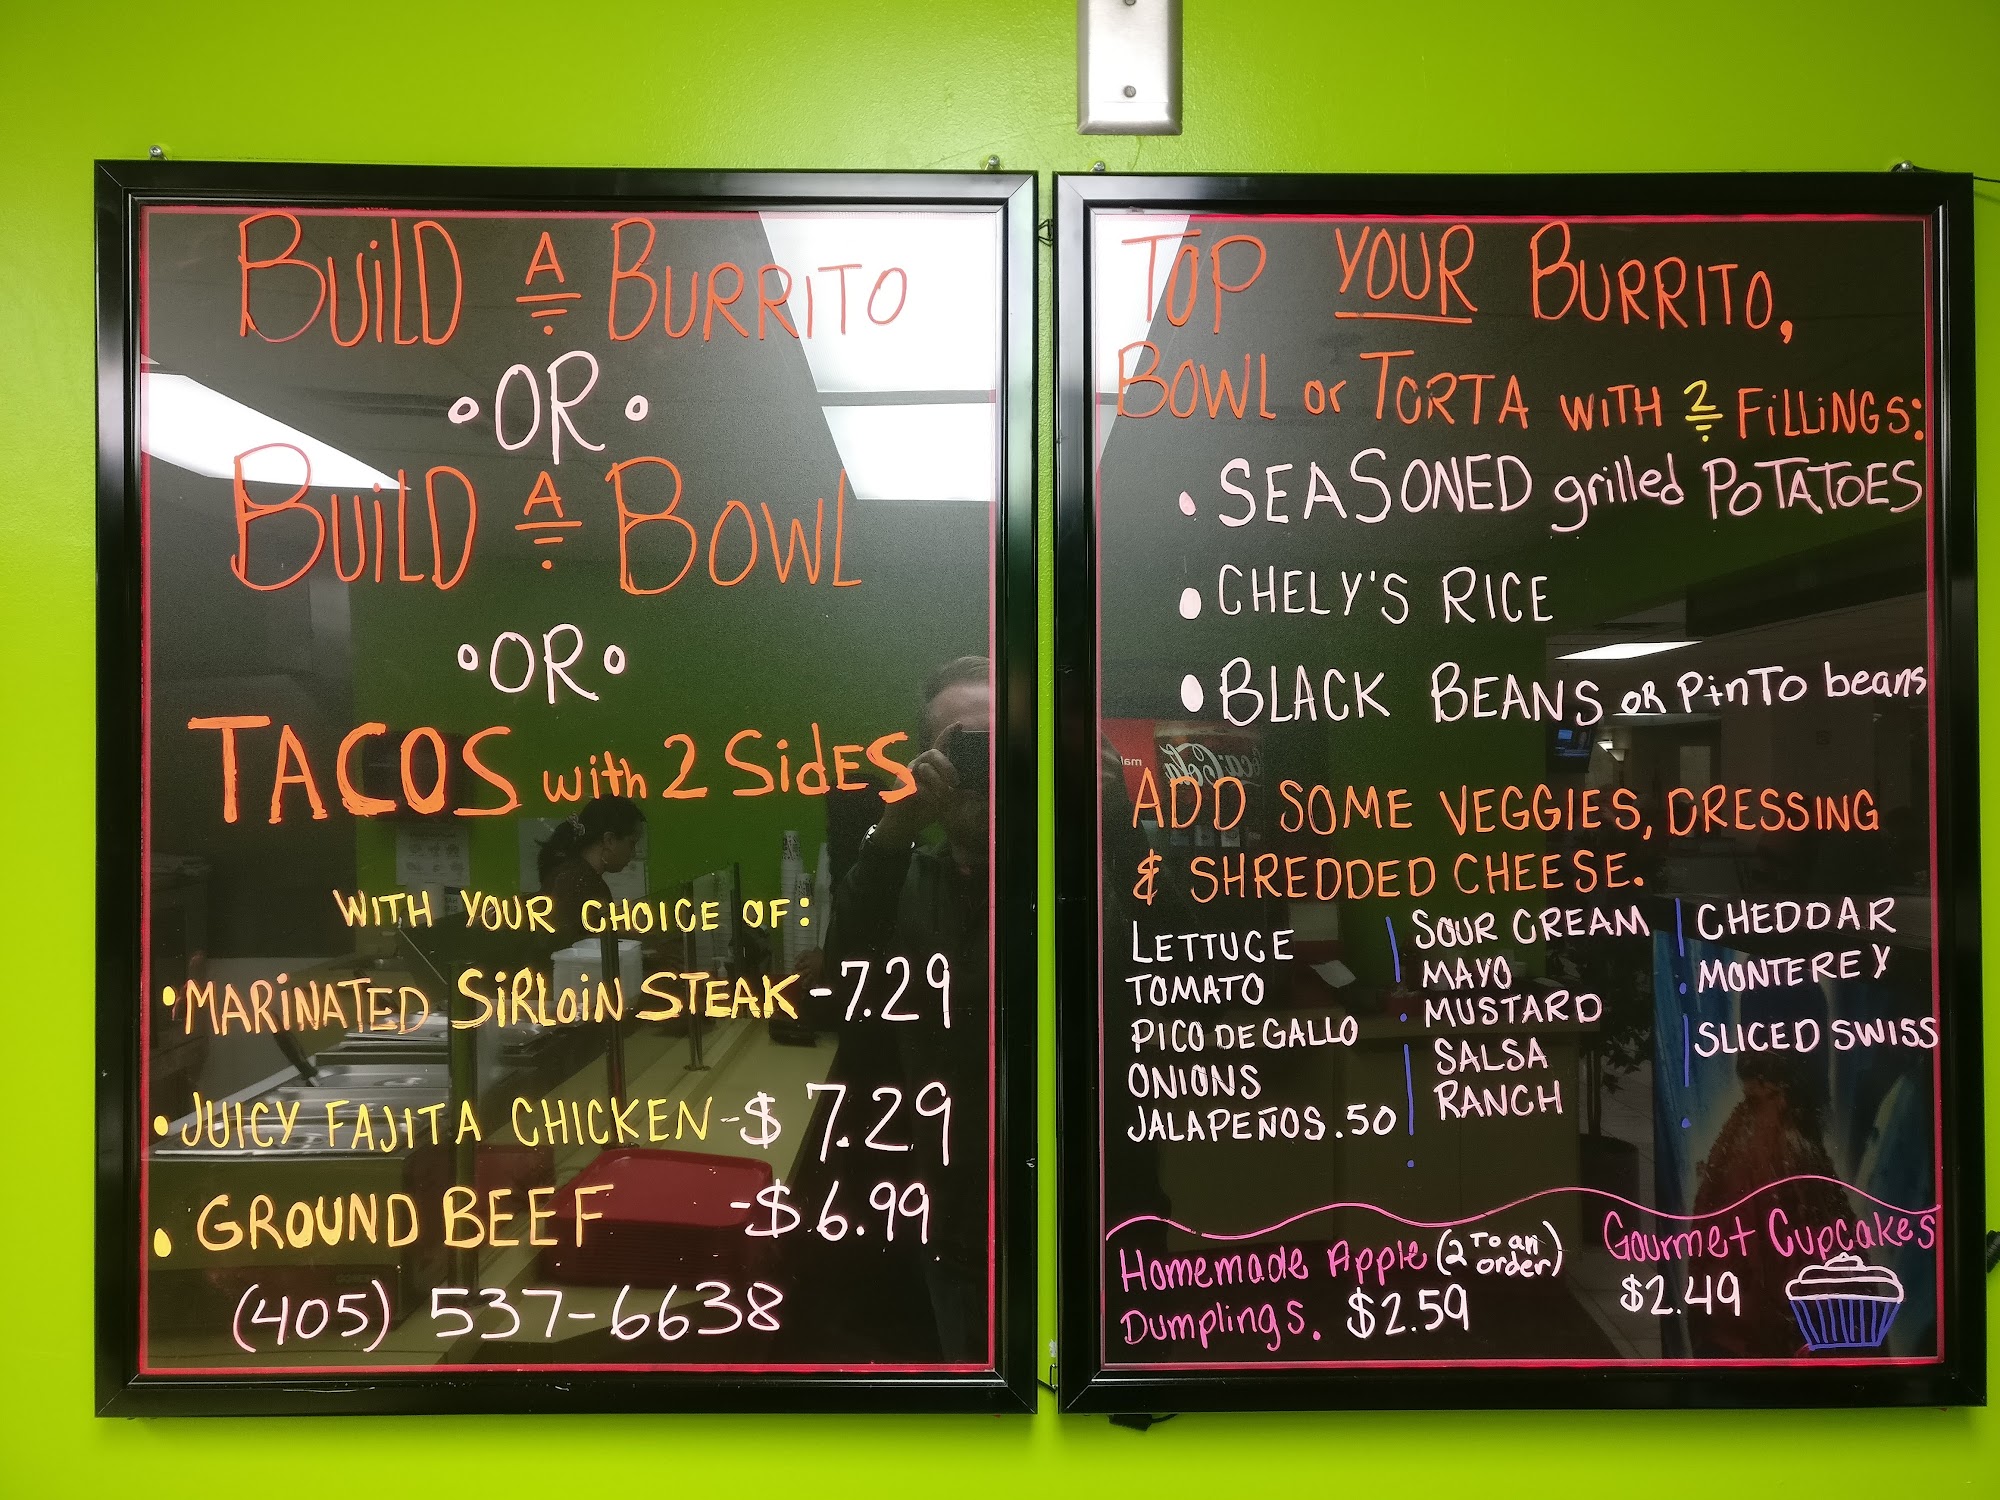 BUiLD A BURRITO
•OR•
BUiLD A BOWL
•OR•
TACOS with 2 SidES
WITH YOUR CHOICE OF:
• MARiNATED SiRLOiN STEAK - 7.29
• JUICY FAJITA CHICKEN - $7.29
• GROUND BEEF - $6.99
(405) 537-6638
TOP YOUR BURRITO,
BOWL or TORTA WITH 2 FiLLiNGS:
• SEASONED grilled POTATOES
• CHELY'S RICE
• BLACK BEANS OR PinTO beans
ADD SOME VEGGIES, DRESSING
& SHREDDED CHEESE.
LETTUCE
TOMATO
PICO DE GALLO
ONIONS
JALAPEÑOS .50
SOUR CREAM
MAYO
MUSTARD
SALSA
RANCH
CHEDDAR
MONTEREY
SLICED SWISS
Homemade Apple (2 TO an order)
Dumplings. $2.59
Gourmet Cupcakes
$2.49
Coca-Cola